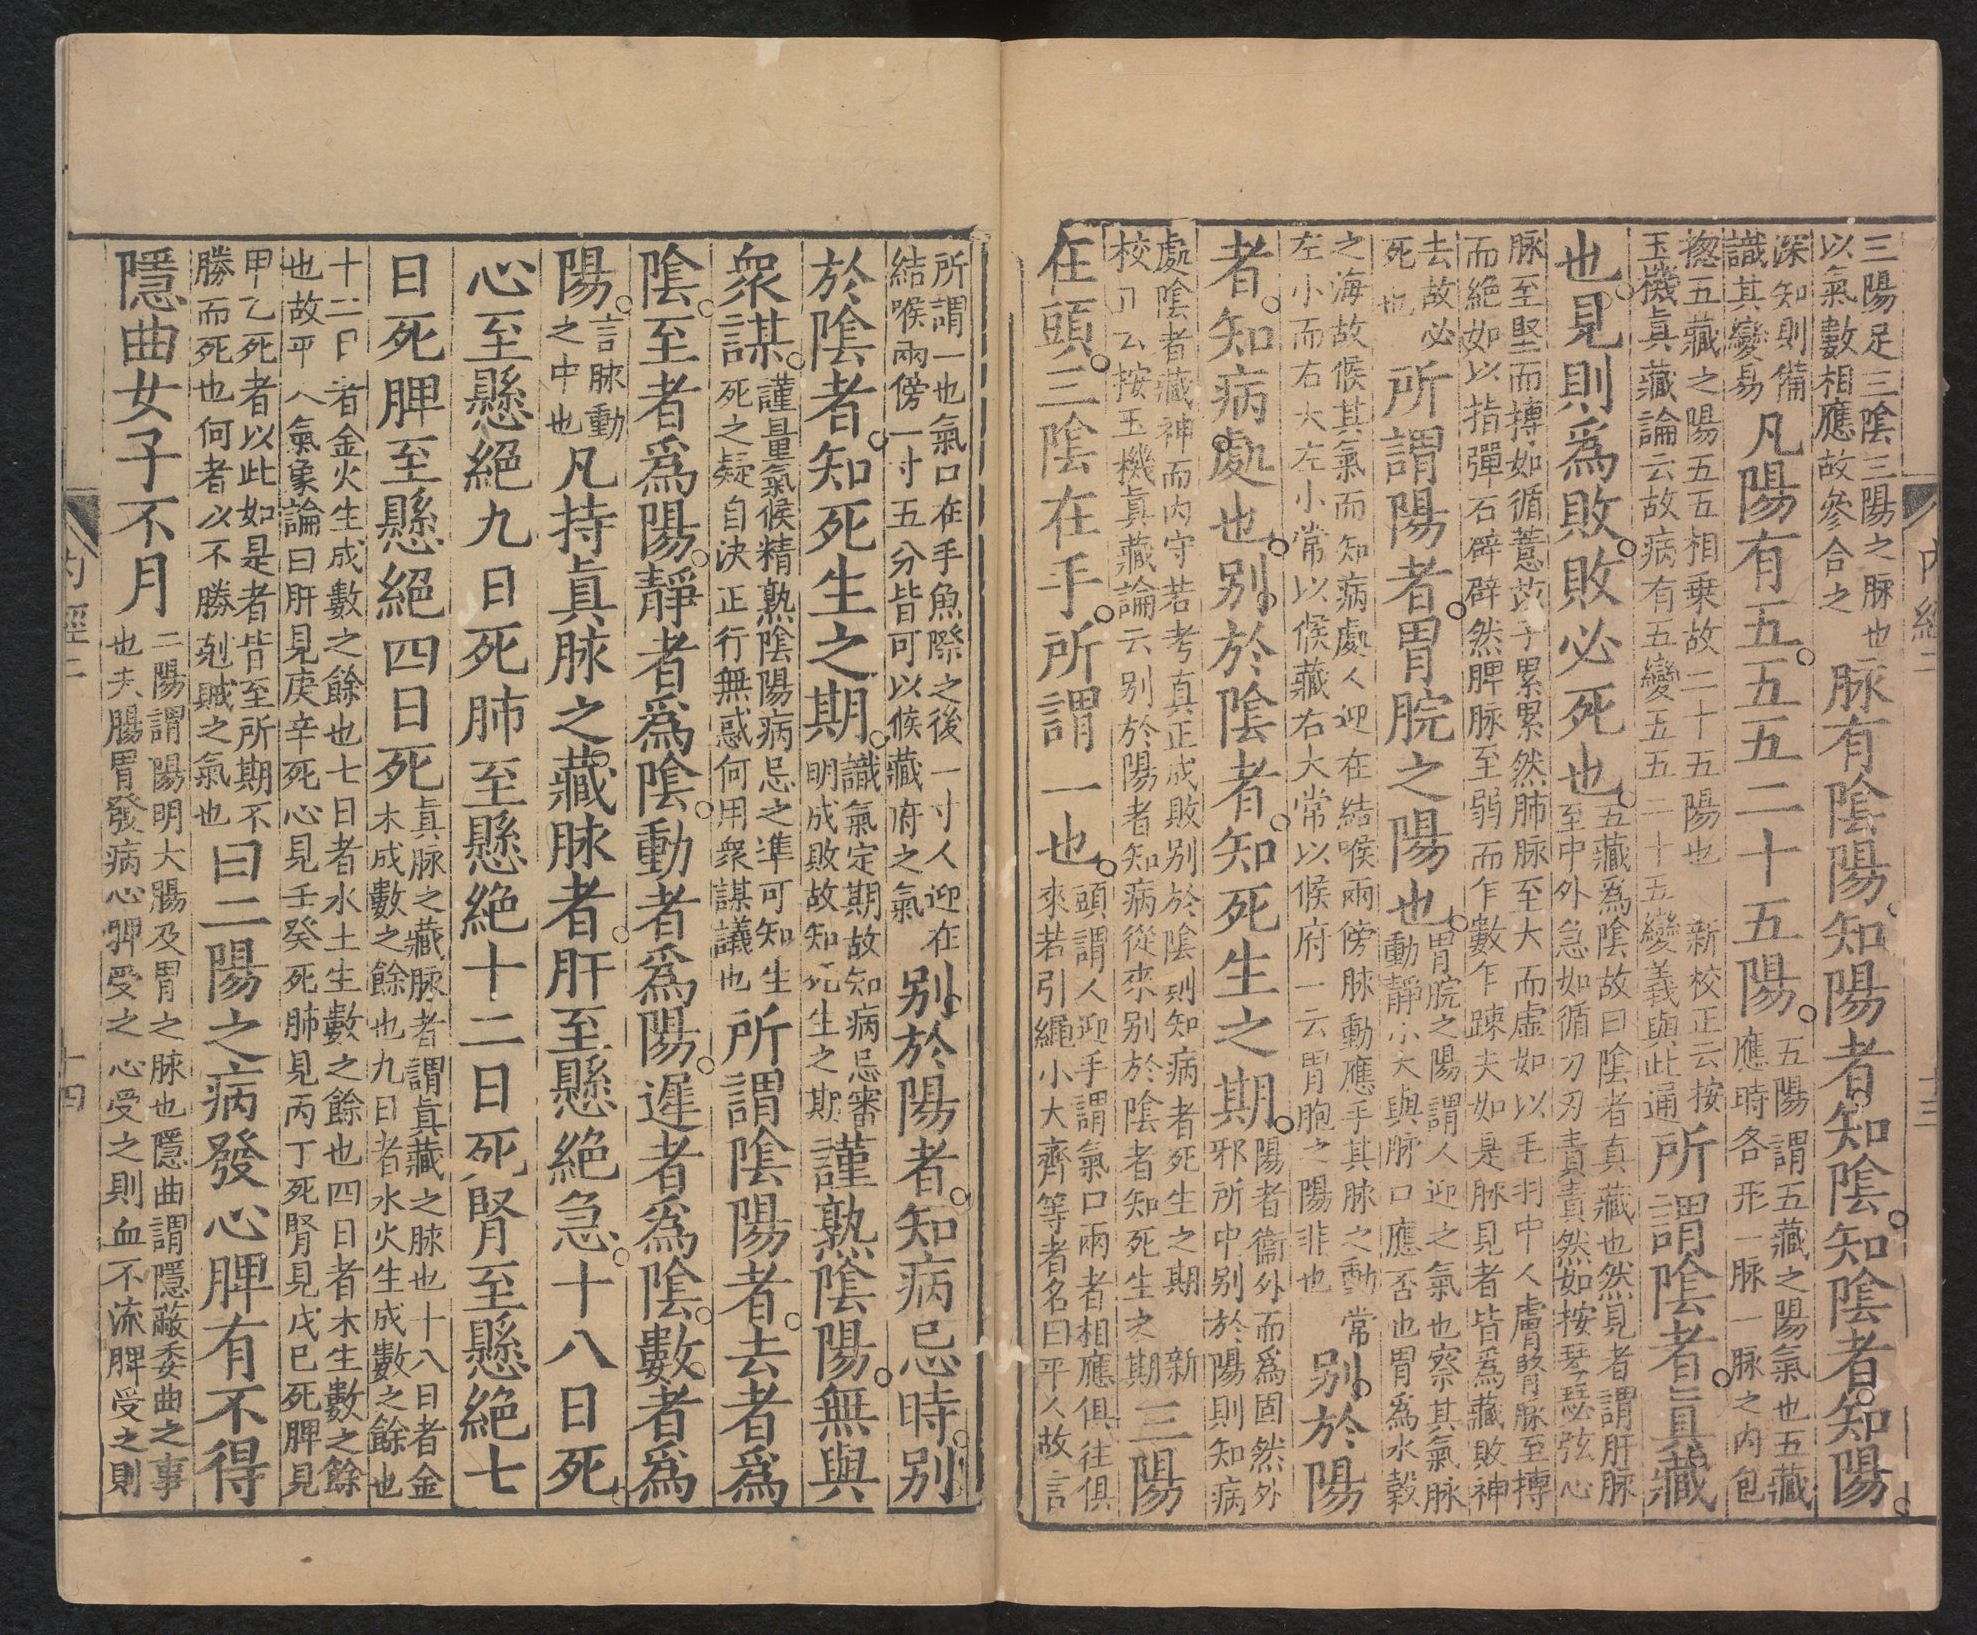 三陽足三陰三陽之脉也
以氣數相應故參合之
脉有陰陽知陽者知陰知陰者知陽
深知則備
識其變易
凡陽有五五五二十五陽
五陽謂五藏之陽氣也五藏
應時各形一脉一脉之内包
揔五藏之陽五五相乗故二十五陽也 新校正云按
玉機眞藏論云故病有五變五五二十五變義與此通
所謂陰者眞藏
也見則爲敗敗必死也
五藏爲陰故曰陰者真藏也然見者謂肝脉
至中外急如循刀刃責責然如按琴瑟弦心
脉至堅而搏如循薏苡子累累然肺脉至大而虛如以毛羽中人膚腎脉至搏
而絕如以指彈石辟辟然脾脉至弱而乍數乍踈夫如是脉見者皆爲藏敗神
去故必
死也
所謂陽者胃脘之陽也
胃脘之陽謂人迎之氣也察其氣脉
動靜小大與脉口應否也胃爲水穀
之海故候其氣而知病處人迎在結喉兩傍脉動應手其脉之動常
左小而右大左小常以候藏右大常以候府一云胃胞之陽非也
别於陽
者知病處也别於陰者知死生之期
陽者衞外而爲固然外
邪所中别於陽則知病
處陰者藏神而内守若考真正成敗别於陰則知病者死生之期 新
校正云按玉機真藏論云别於陽者知病從來别於陰者知死生之期
三陽
在頭三陰在手所謂一也
頭謂人迎手謂氣口兩者相應俱往俱
來若引繩小大齊等者名曰平人故言
内經二 十三
所謂一也氣口在手魚際之後一寸人迎在
結喉兩傍一寸五分皆可以候藏府之氣
别於陽者知病忌時别
於陰者知死生之期
識氣定期故知病忌審
明成敗故知死生之期
謹熟陰陽無與
衆謀
謹量氣候精熟陰陽病忌之準可知生
死之疑自決正行無惑何用衆謀議也
所謂陰陽者去者爲
陰至者爲陽靜者爲陰動者爲陽遲者爲陰數者爲
陽
言脉動
之中也
凡持眞脉之藏脉者肝至懸絶急十八日死
心至懸絶九日死肺至懸絶十二日死腎至懸絶七
日死脾至懸絶四日死
真脉之藏脉者謂真藏之脉也十八日者金
木成數之餘也九日者水火生成數之餘也
十二日者金火生成數之餘也七日者水土生數之餘也四日者木生數之餘
也故平人氣象論曰肝見庚辛死心見壬癸死肺見丙丁死腎見戊巳死脾見
甲乙死者以此如是者皆至所期不
勝而死也何者以不勝剋賊之氣也
曰二陽之病發心脾有不得
隱曲女子不月
二陽謂陽明大腸及胃之脉也隱曲謂隱蔽委曲之事
也夫腸胃發病心脾受之心受之則血不流脾受之則
内經二 十四